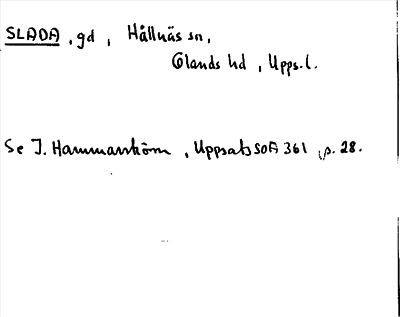 SLADA, gd, Hållnäs sn,
Olands hd, Upps. l.
Se I. Hammarström, Uppsats SOA 361, p. 28.